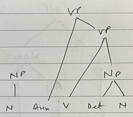 VP
VP
NP NP
N Aux V Det N